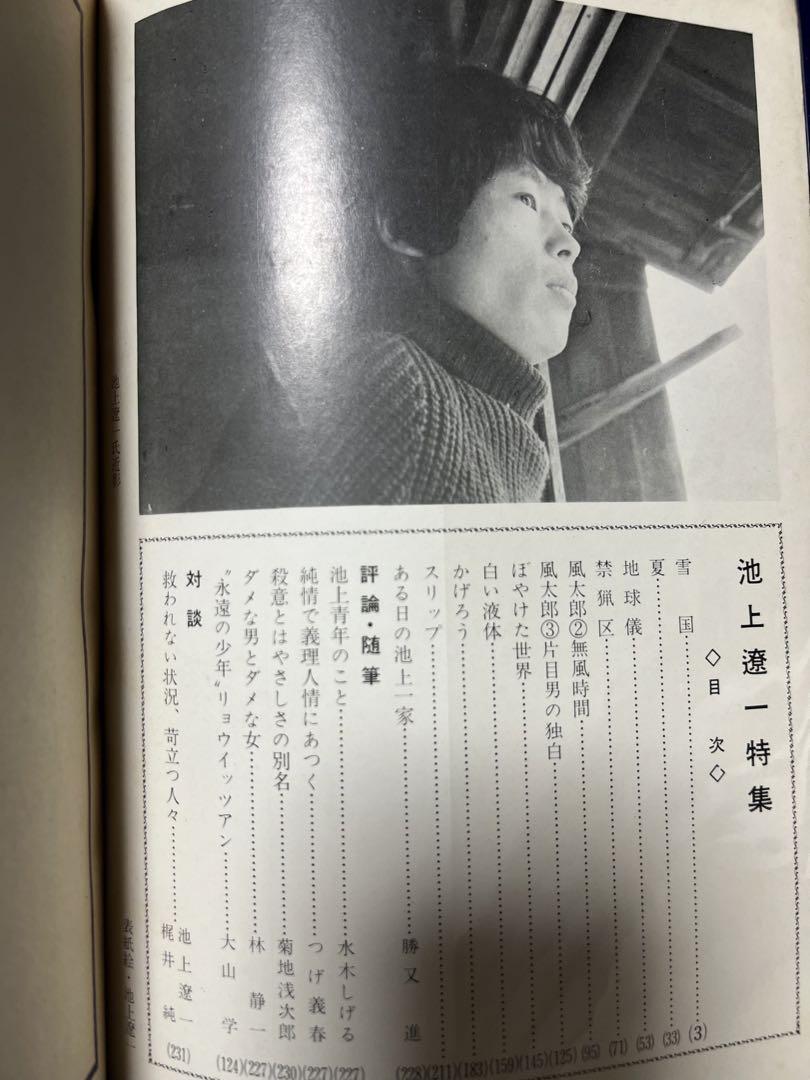 池上遼一特集
◇目次◇
雪国……(3)
夏……(33)
地球儀……(53)
禁猟区……(71)
風太郎②無風時間……(95)
風太郎③片目男の独白……(125)
ぼやけた世界……(145)
白い液体……(159)
かげろう……(183)
スリップ……(211)
ある日の池上一家……勝又進(228)
評論・随筆
池上青年のこと……水木しげる(227)
純情で義理人情にあつく……つげ義春(227)
殺意とはやさしさの別名……菊地浅次郎(230)
ダメな男とダメな女……林静一(227)
〝永遠の少年〟リョウイッツアン……大山学(124)
対談
救われない状況、苛立つ人々……池上遼一
梶井純(231)
池上遼一氏近影
表紙絵・池上遼一